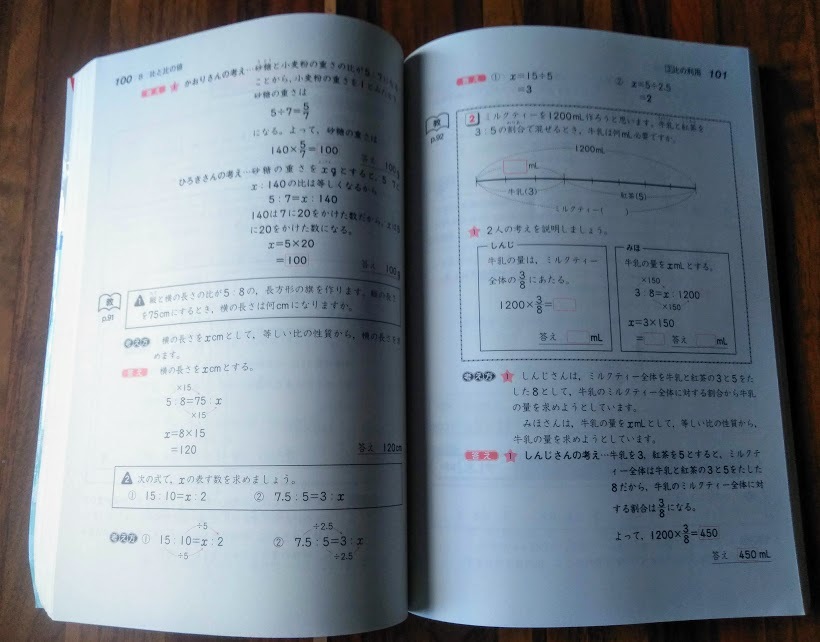 100 8 比と比の値
かおりさんの考え…砂糖と小麦粉の重さの比が5：7になる
ことから，小麦粉の重さを1とみたとき
砂糖の重さは
5÷7=5/7
になる。よって，砂糖の重さは
140×5/7=100
答え 100g
ひろきさんの考え…砂糖の重さをxgとすると，5：7と
x：140の比は等しくなるから
5：7=x：140
140は7に20をかけた数だから，xは5
に20をかけた数になる。
x=5×20
=100
答え 100g
教
p.91
1 縦と横の長さの比が5：8の，長方形の旗を作ります。縦の長さ
を75cmにするとき，横の長さは何cmになりますか。
考え方 横の長さをxcmとして，等しい比の性質から，横の長さを求
めます。
答え 横の長さをxcmとする。
×15
5：8=75：x
×15
x=8×15
=120
答え 120cm
2 次の式で，xの表す数を求めましょう。
① 15：10=x：2 ② 7.5：5=3：x
÷5 ÷2.5
考え方 ① 15：10=x：2 ② 7.5：5=3：x
÷5 ÷2.5
③比の利用 101
答え ① x=15÷5 ② x=5÷2.5
=3 =2
教
p.92
2 ミルクティーを1200mL作ろうと思います。牛乳と紅茶を
3：5の割合で混ぜるとき，牛乳は何mL必要ですか。
1200mL
mL
牛乳(3) 紅茶(5)
ミルクティー( )
1 2人の考えを説明しましょう。
しんじ
牛乳の量は，ミルクティー
全体の3/8にあたる。
1200×3/8=
答え mL
みほ
牛乳の量をxmLとする。
×150
3：8=x：1200
×150
x=3×150
= 答え mL
考え方 1 しんじさんは，ミルクティー全体を牛乳と紅茶の3と5をた
した8として，牛乳のミルクティー全体に対する割合から牛乳
の量を求めようとしています。
みほさんは，牛乳の量をxmLとして，等しい比の性質から，
牛乳の量を求めようとしています。
答え 1 しんじさんの考え…牛乳を3，紅茶を5とすると，ミルクテ
ィー全体は牛乳と紅茶の3と5をたした
8だから，牛乳のミルクティー全体に対
する割合は3/8になる。
よって，1200×3/8=450
答え 450mL